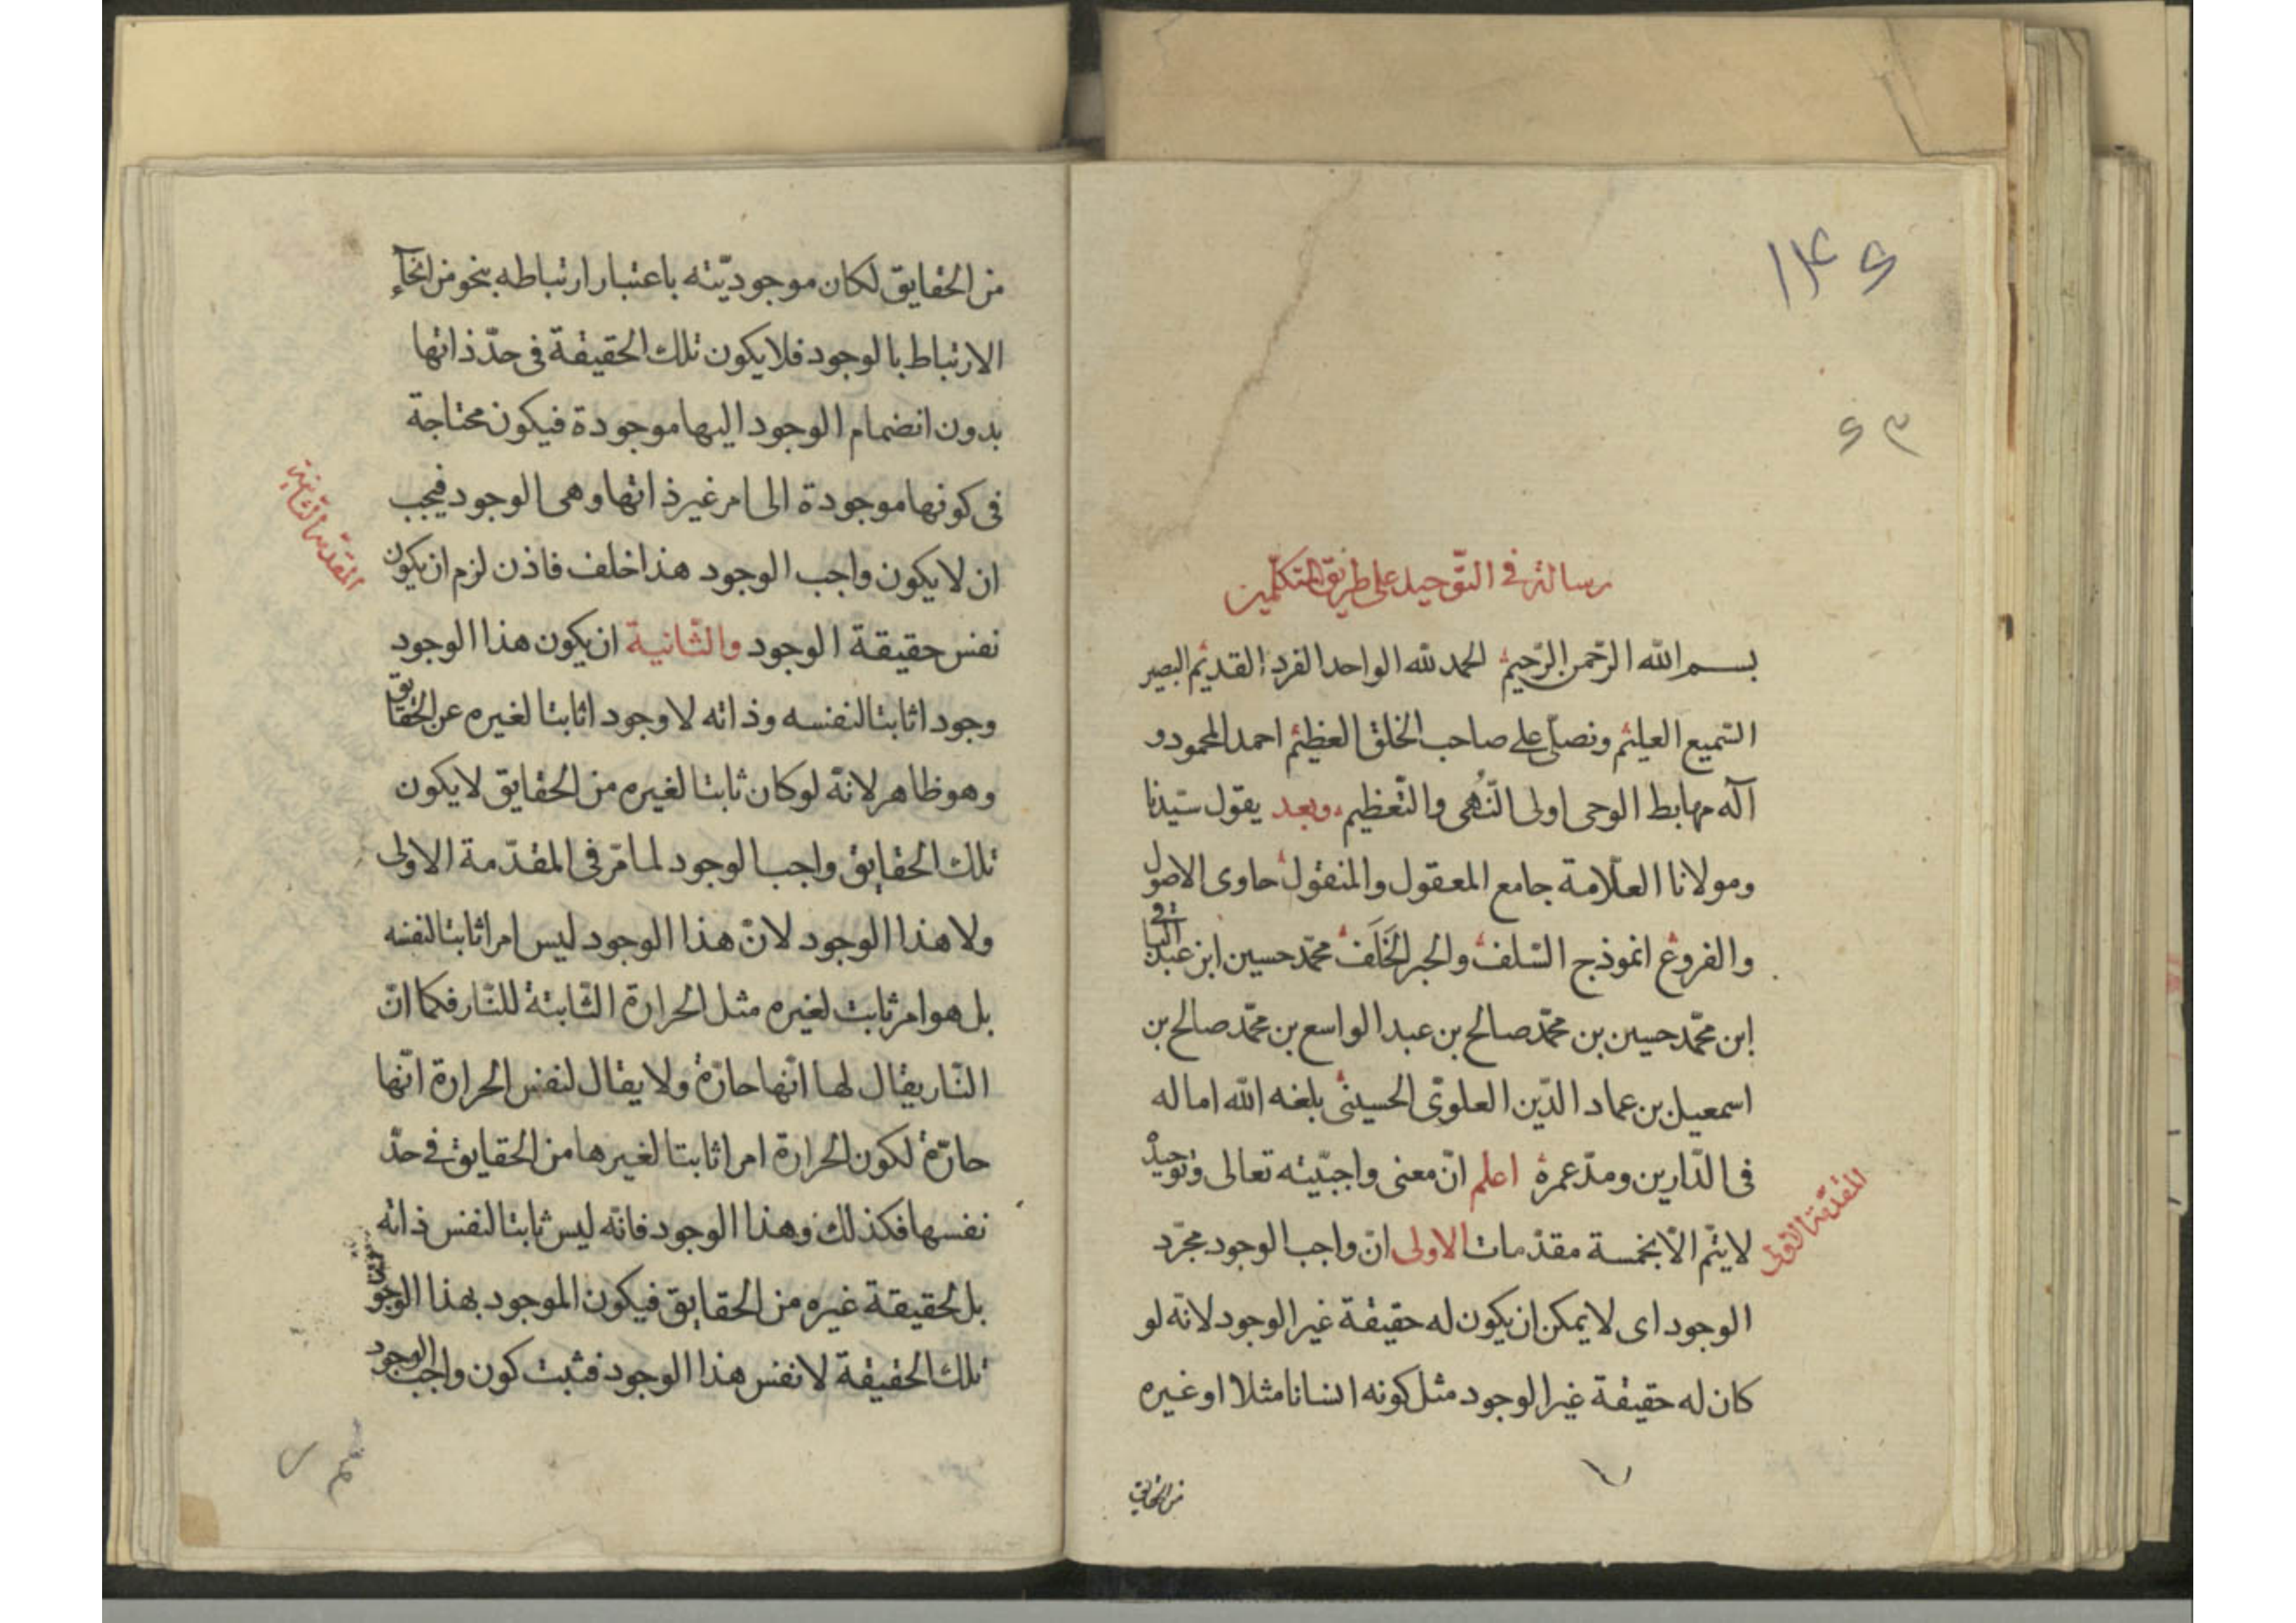 ۱۴۶
۶۳
رسالة في التّوحيد على طريق المتكلّمين
بسم الله الرّحمن الرّحيم الحمد لله الواحد الفرد القديم البصير
السّميع العليم ونصلّى على صاحب الخلق العظيم احمد المحمود و
آله مهابط الوحى اولى النُّهى والتّعظيم وبعد يقول سيّدنا
ومولانا العلّامة جامع المعقول والمنقول حاوى الاصول
والفروع انموذج السّلف والحبر الخَلَف محمّد حسين ابن عبد الباقى
ابن محمّد حسين بن محمّد صالح بن عبد الواسع بن محمّد صالح بن
اسمعيل بن عماد الدّين العلوىّ الحسينى بلغه الله اماله
فى الدّارين ومدّ عمره اعلم انّ معنى واجبيّته تعالى وتوحيده
لا يتمّ الّا بخمسة مقدّمات الاولى انّ واجب الوجود مجرّد
المقدّمة الاولى
الوجود اى لا يمكن ان يكون له حقيقة غير الوجود لانّه لو
كان له حقيقة غير الوجود مثل كونه انسانا مثلا او غيره
من الحقايق
من الحقايق لكان موجوديّته باعتبار ارتباطه بنحو من انحآء
الارتباط بالوجود فلا يكون تلك الحقيقة فى حدّ ذاتها
بدون انضمام الوجود اليها موجودة فيكون محتاجة
فى كونها موجودة الى امر غير ذاتها وهى الوجود فيجب
ان لا يكون واجب الوجود هذا خلف فاذن لزم ان يكون
المقدّمة الثّانية
نفس حقيقة الوجود والثّانية ان يكون هذا الوجود
وجودا ثابتا لنفسه وذاته لا وجودا ثابتا لغيره عن الحقايق
وهو ظاهر لانّه لو كان ثابتا لغيره من الحقايق لا يكون
تلك الحقايق واجب الوجود لما مّر فى المقدّمة الاولى
ولا هذا الوجود لانّ هذا الوجود ليس امرا ثابتا لنفسه
بل هو امر ثابت لغيره مثل الحرارة الثّابتة للنّار فكما انّ
النّار يقال لها انّها حارّة ولا يقال لنفس الحرارة انّها
حارّة لكون الحرارة امرا ثابتا لغيرها من الحقايق فى حدّ
نفسها فكذلك وهذا الوجود فانّه ليس ثابتا لنفس ذاته
بل لحقيقة غيره من الحقايق فيكون الموجود بهذا الوجود
تلك الحقيقة لا نفس هذا الوجود فثبت كون واجب الوجود